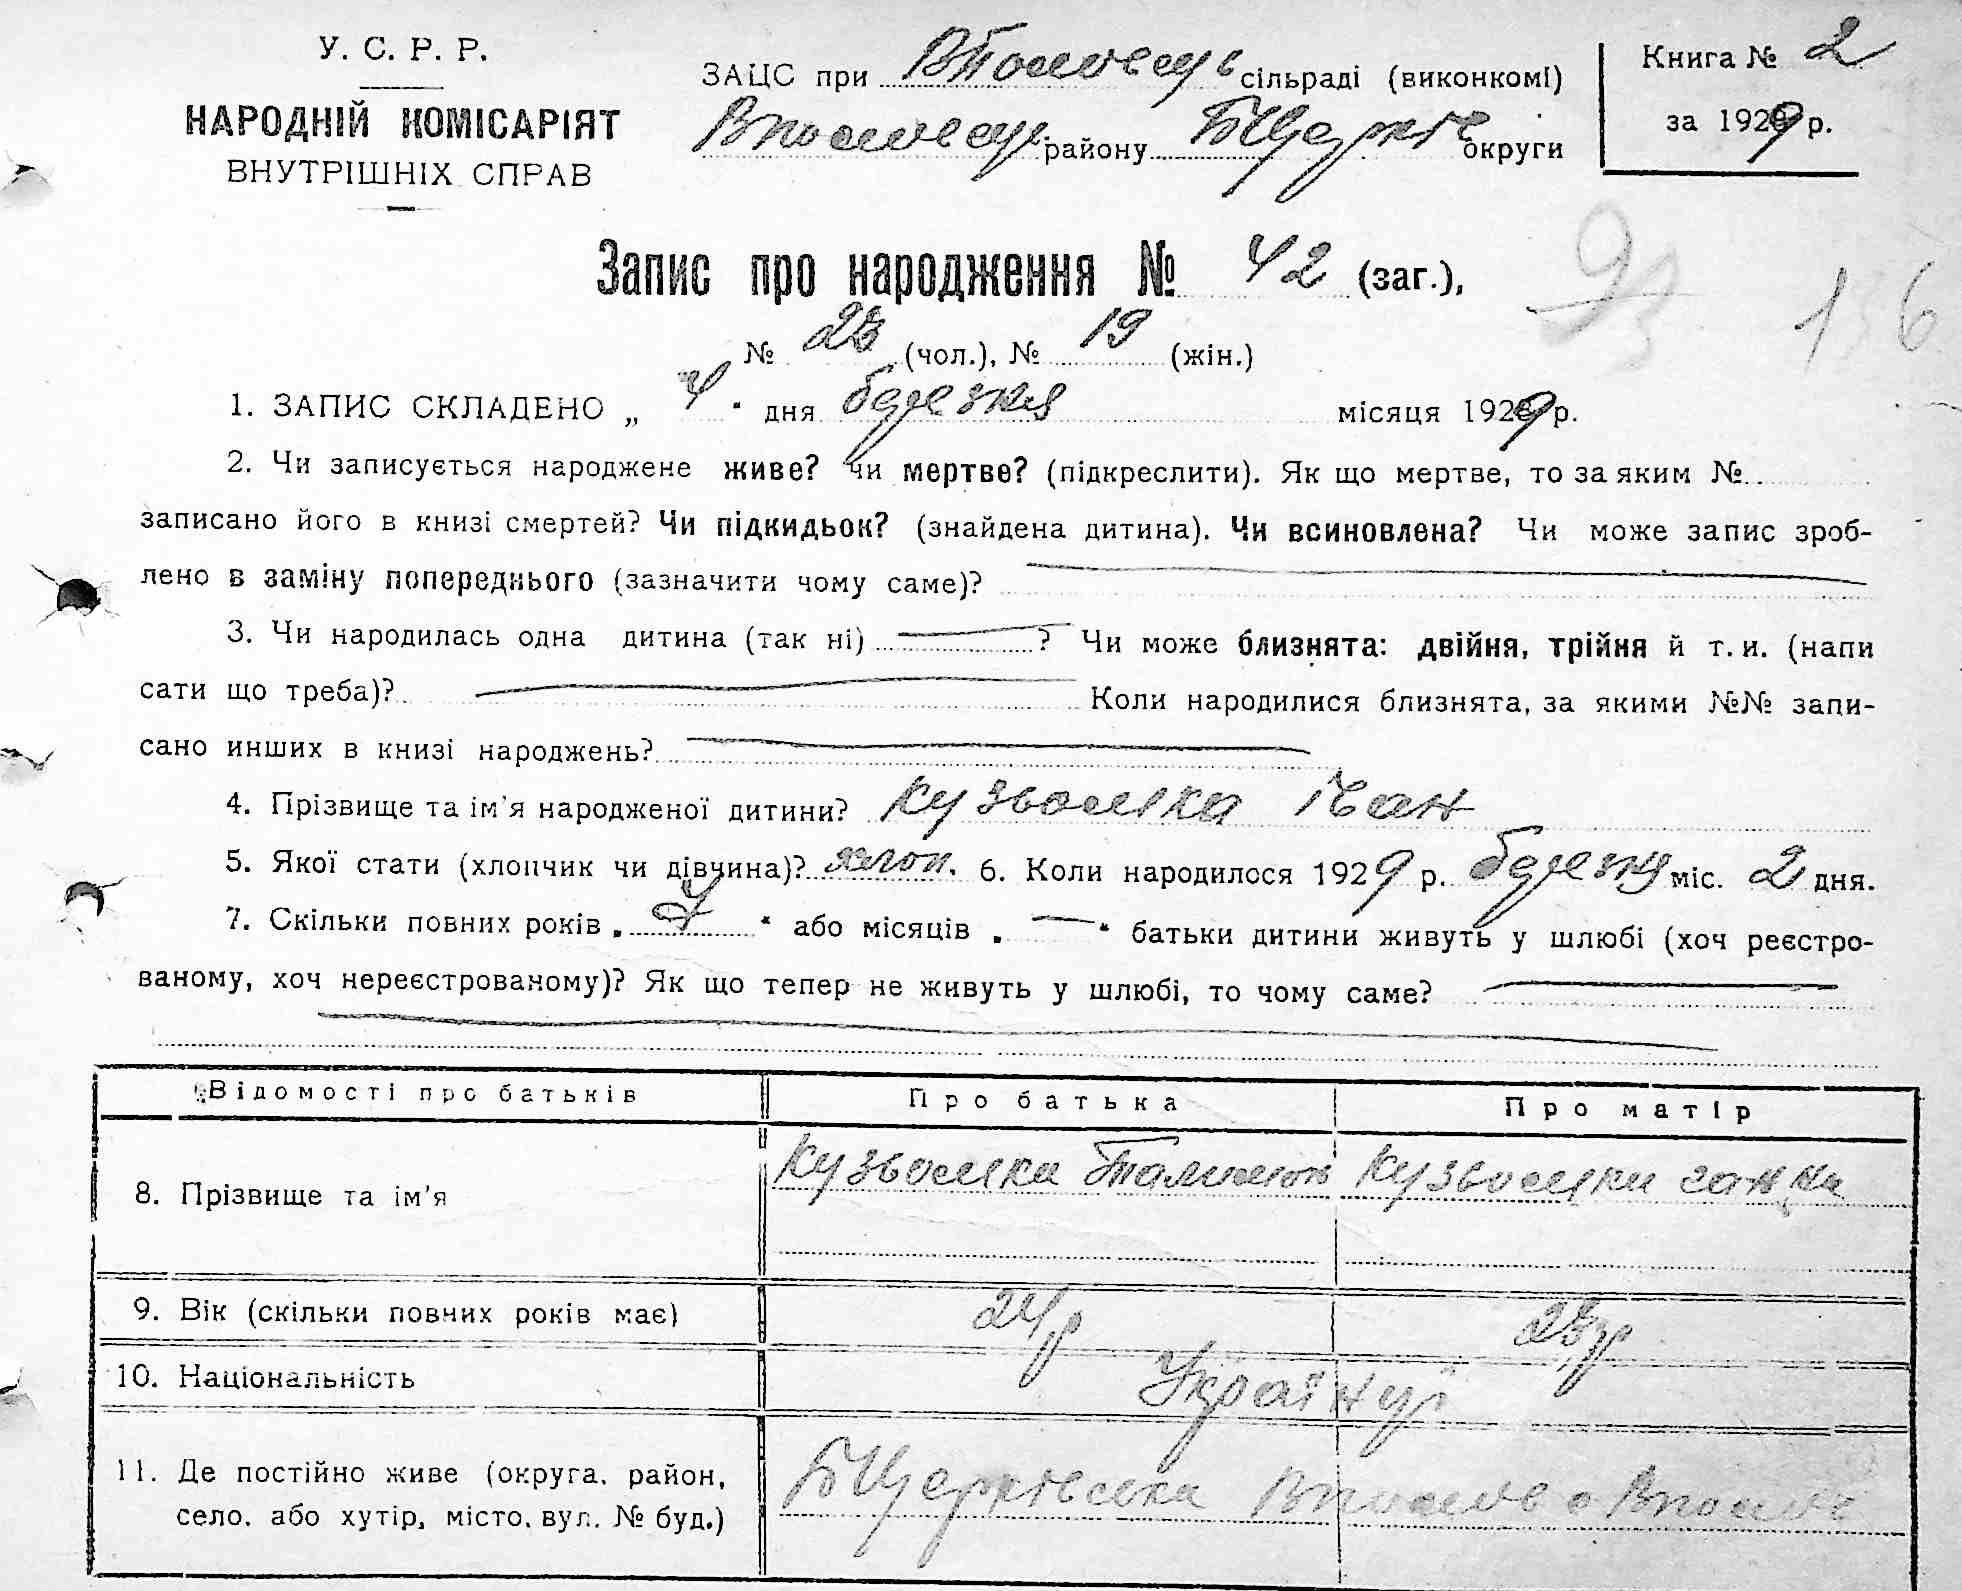 У. С. Р. Р.
НАРОДНІЙ КОМІСАРІЯТ
ВНУТРІШНІХ СПРАВ
ЗАЦС при сільраді (виконкомі)
району БЦерків округи
Книга № 2
за 1929 р.
Запис про народження № 42 (заг.),
№ 23 (чол.), № 19 (жін.)
1. ЗАПИС СКЛАДЕНО „ 4 “ дня березня місяця 1929 р.
2. Чи записується народжене живе? чи мертве? (підкреслити). Як що мертве, то за яким №
записано його в книзі смертей? Чи підкидьок? (знайдена дитина). Чи всиновлена? Чи може запис зроб-
лено в заміну попереднього (зазначити чому саме)?
3. Чи народилась одна дитина (так ні) ? Чи може близнята: двійня, трійня й т. и. (напи
сати що треба)? Коли народилися близнята, за якими №№ запи-
сано инших в книзі народжень?
4. Прізвище та ім'я народженої дитини? Кузьомка Іван
5. Якої стати (хлопчик чи дівчина)? хлоп. 6. Коли народилося 1929 р. березня міс. 2 дня.
7. Скільки повних років „ “ або місяців „ — “ батьки дитини живуть у шлюбі (хоч реєстро-
ваному, хоч нереєстрованому)? Як що тепер не живуть у шлюбі, то чому саме?
Відомості про батьків Про батька Про матір
8. Прізвище та ім'я Кузьомка Кузьомка Ганна
9. Вік (скільки повних років має) 24р 23р
10. Національність Українці
11. Де постійно живе (округа, район, БЦерківська
село, або хутір, місто, вул. № буд.)